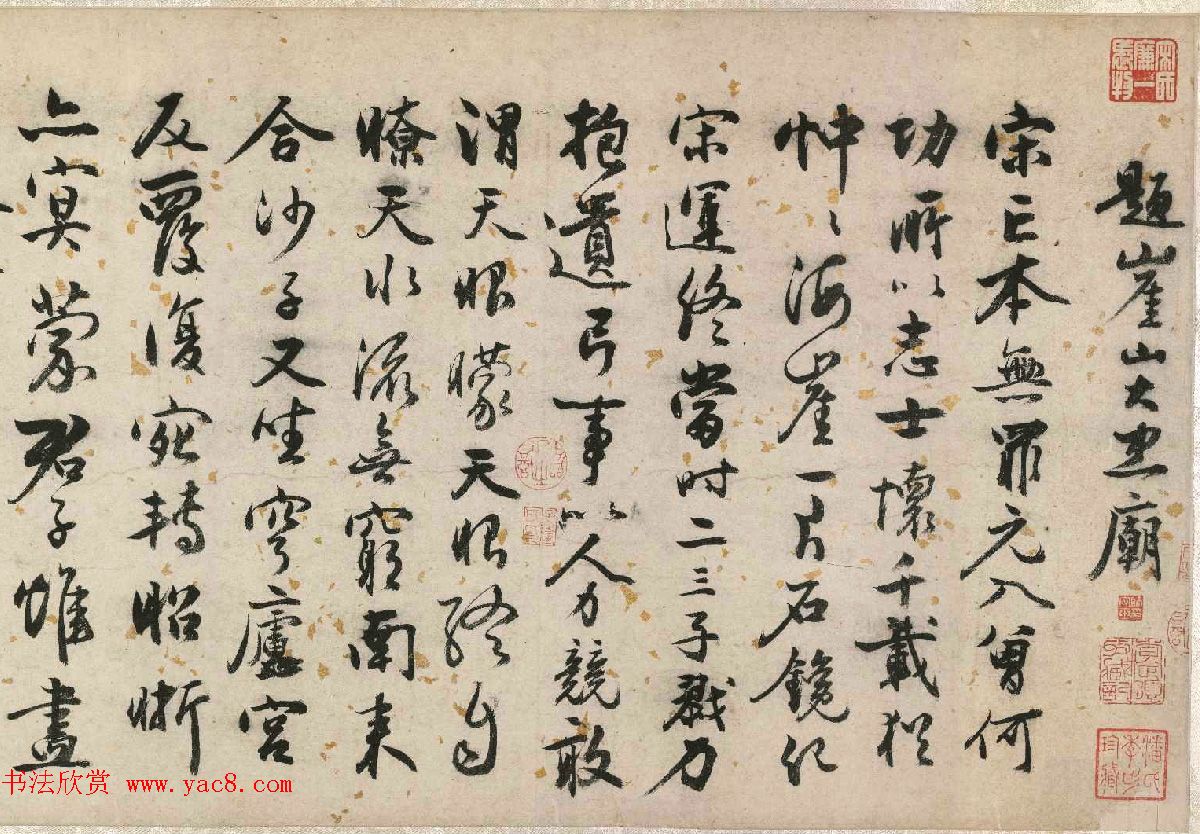 題崖山大忠廟
宋亡本無罪元入曾何
功所以志士懷千載猶
忡〻海崖一片石鐫紀
宋運終當时二三子戮力
抱遺弓事以人力競敢
謂天眼矇天眼終自
瞭天水流無窮南来
合沙子又生穹廬宮
反覆復宛轉昭晰
亦冥蒙君子惟盡
书法欣赏 www.yac8.com